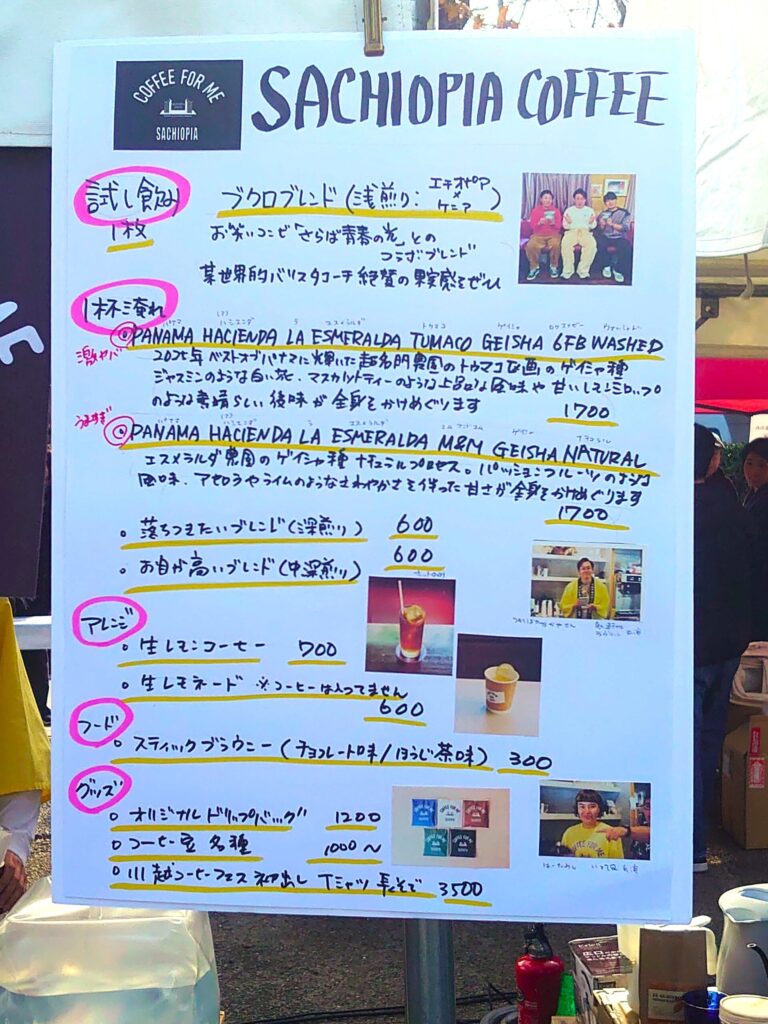 COFFEE FOR ME
SACHIOPIA
SACHIOPIA COFFEE
試し飲み
1枚
ブクロブレンド(浅煎り: エチオピア × ケニア)
お笑いコンビ「さらば青春の光」との
コラボブレンド
某世界的バリスタコーチ絶賛の果実感をぜひ
1杯淹れ
激ヤバ
パナマ (ア)ハシエンダ ラ エスメラルダ トゥマコ ゲイシャ
PANAMA HACIENDA LA ESMERALDA TUMACO GEISHA 6FB WASHED
2025年ベストオブパナマに輝いた超名門農園のトゥマコ区画のゲイシャ種
ジャスミンのような白い花、マスカットティーのような上品な風味や甘いレモンシロップ
のような素晴らしい後味が全身をかけめぐります
1700
うますぎ
パナマ (ア)ハシエンダ ラ エスメラルダ エム アンド エム ゲイシャ ナチュラル
PANAMA HACIENDA LA ESMERALDA M&M GEISHA NATURAL
エスメラルダ農園のゲイシャ種 ナチュラルプロセス。パッションフルーツのような
風味、アセロラやライムのようなさわやかさを伴った甘さが全身をかけめぐります
1700
落ちつきたいブレンド(深煎り) 600
お目が高いブレンド(中深煎り) 600
アレンジ
生レモンコーヒー 700
生レモネード ※コーヒーは入ってません
600
フード
スティックブラウニー(チョコレート味/ほうじ茶味) 300
グッズ
オリジナルドリップバッグ 1200
コーヒー豆 各種 1000〜
川越コーヒーフェス初出し Tシャツ 長そで 3500